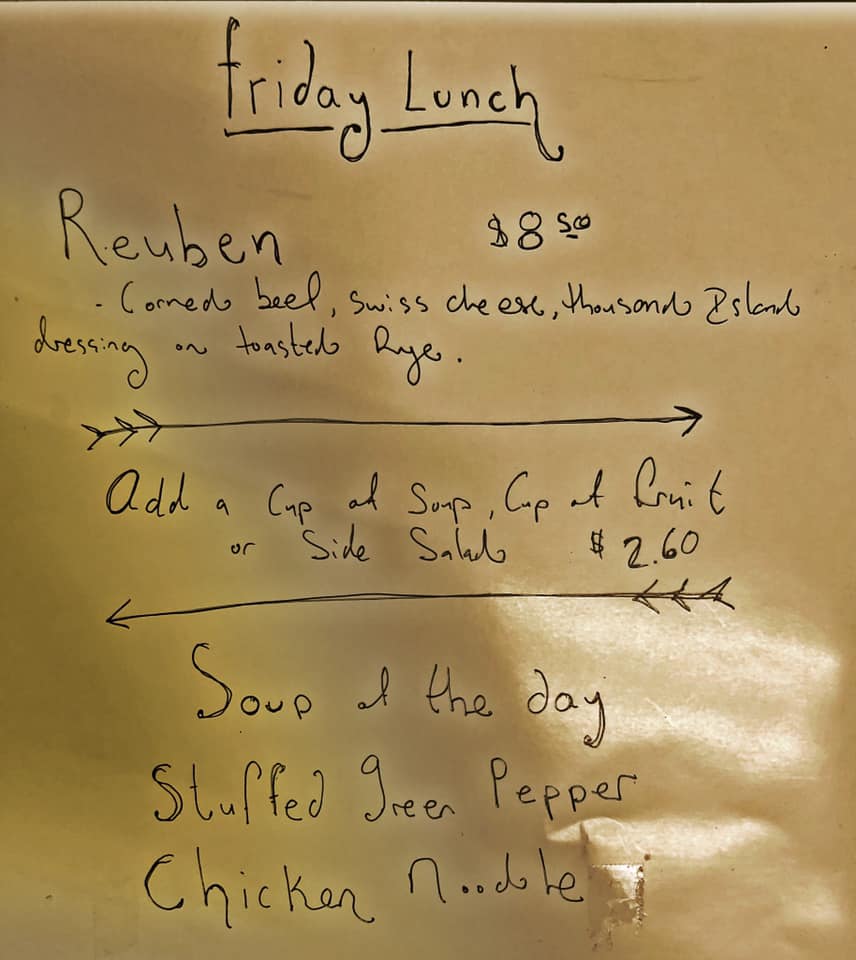 Friday Lunch
Reuben $8.50
- Corned beef, swiss cheese, thousand Island
dressing on toasted Rye.
Add a Cup of Soup, Cup of fruit
or Side Salad $2.60
Soup of the day
Stuffed green Pepper
Chicken Noodle